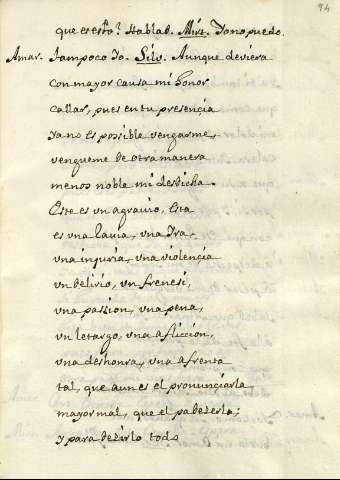 94
que es esto? Hablad. Mirt. Yo no puedo.
Amar. Tampoco Yo. Silv. Aunque deviera
con mayor causa mi honor
callar, pues en tu presençia
ya no es possible vengarme,
vengueme de otra manera
menos noble mi desdicha.
Este es vn agravio, esta
es vna lavia, vna Yra,
vna injuria, vna violençia
vn delirio, vn frenesi,
vna passion, vna pena,
vn letargo, vna afliccion,
vna deshonra, vna afrenta
tal, que aun es el pronunçiarla
mayor mal, que el padezerla;
y para dezirlo todo